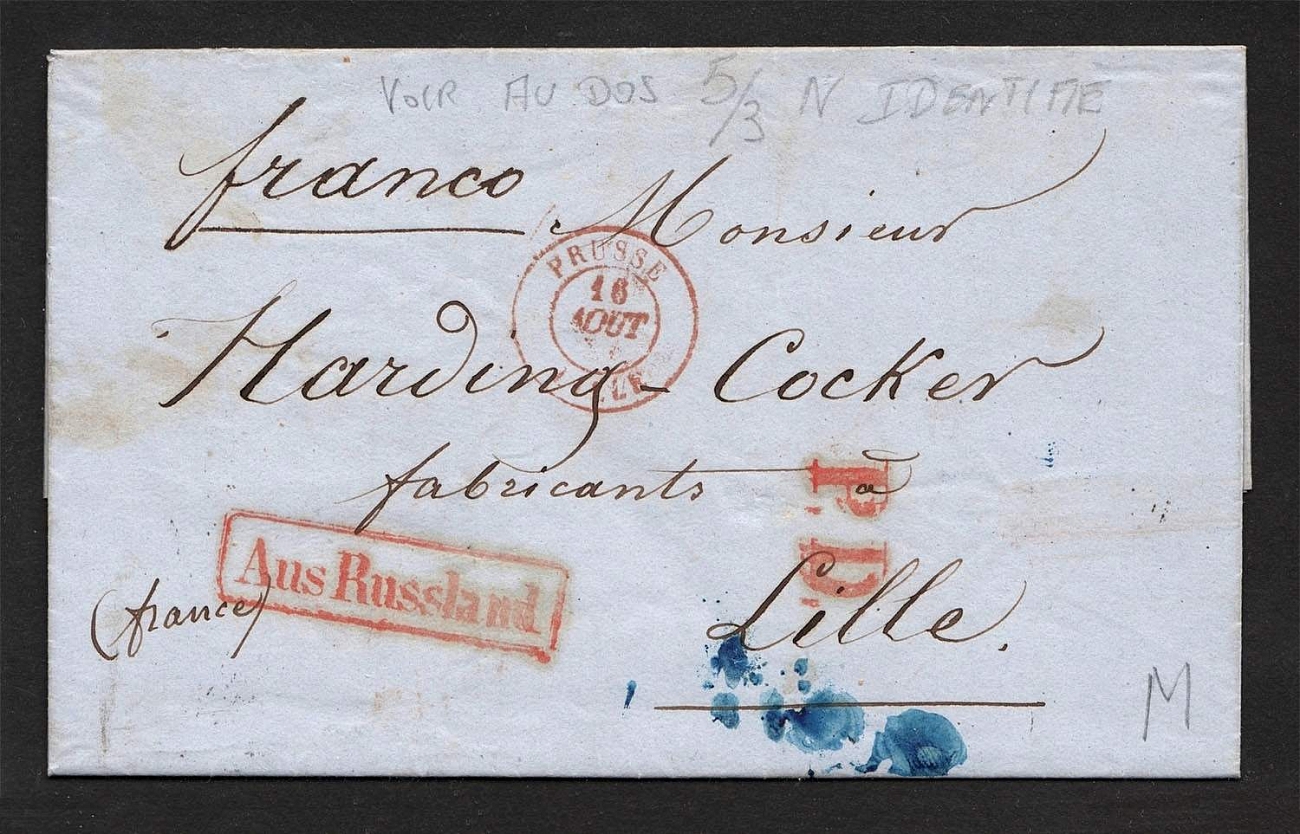 VOIR AU DOS 5/3 N IDENTIFIE
franco
Monsieur
PRUSSE
16
AOUT
Harding-Cocker
fabricants à
P.D.
Aus Russland
(france)
Lille.
M